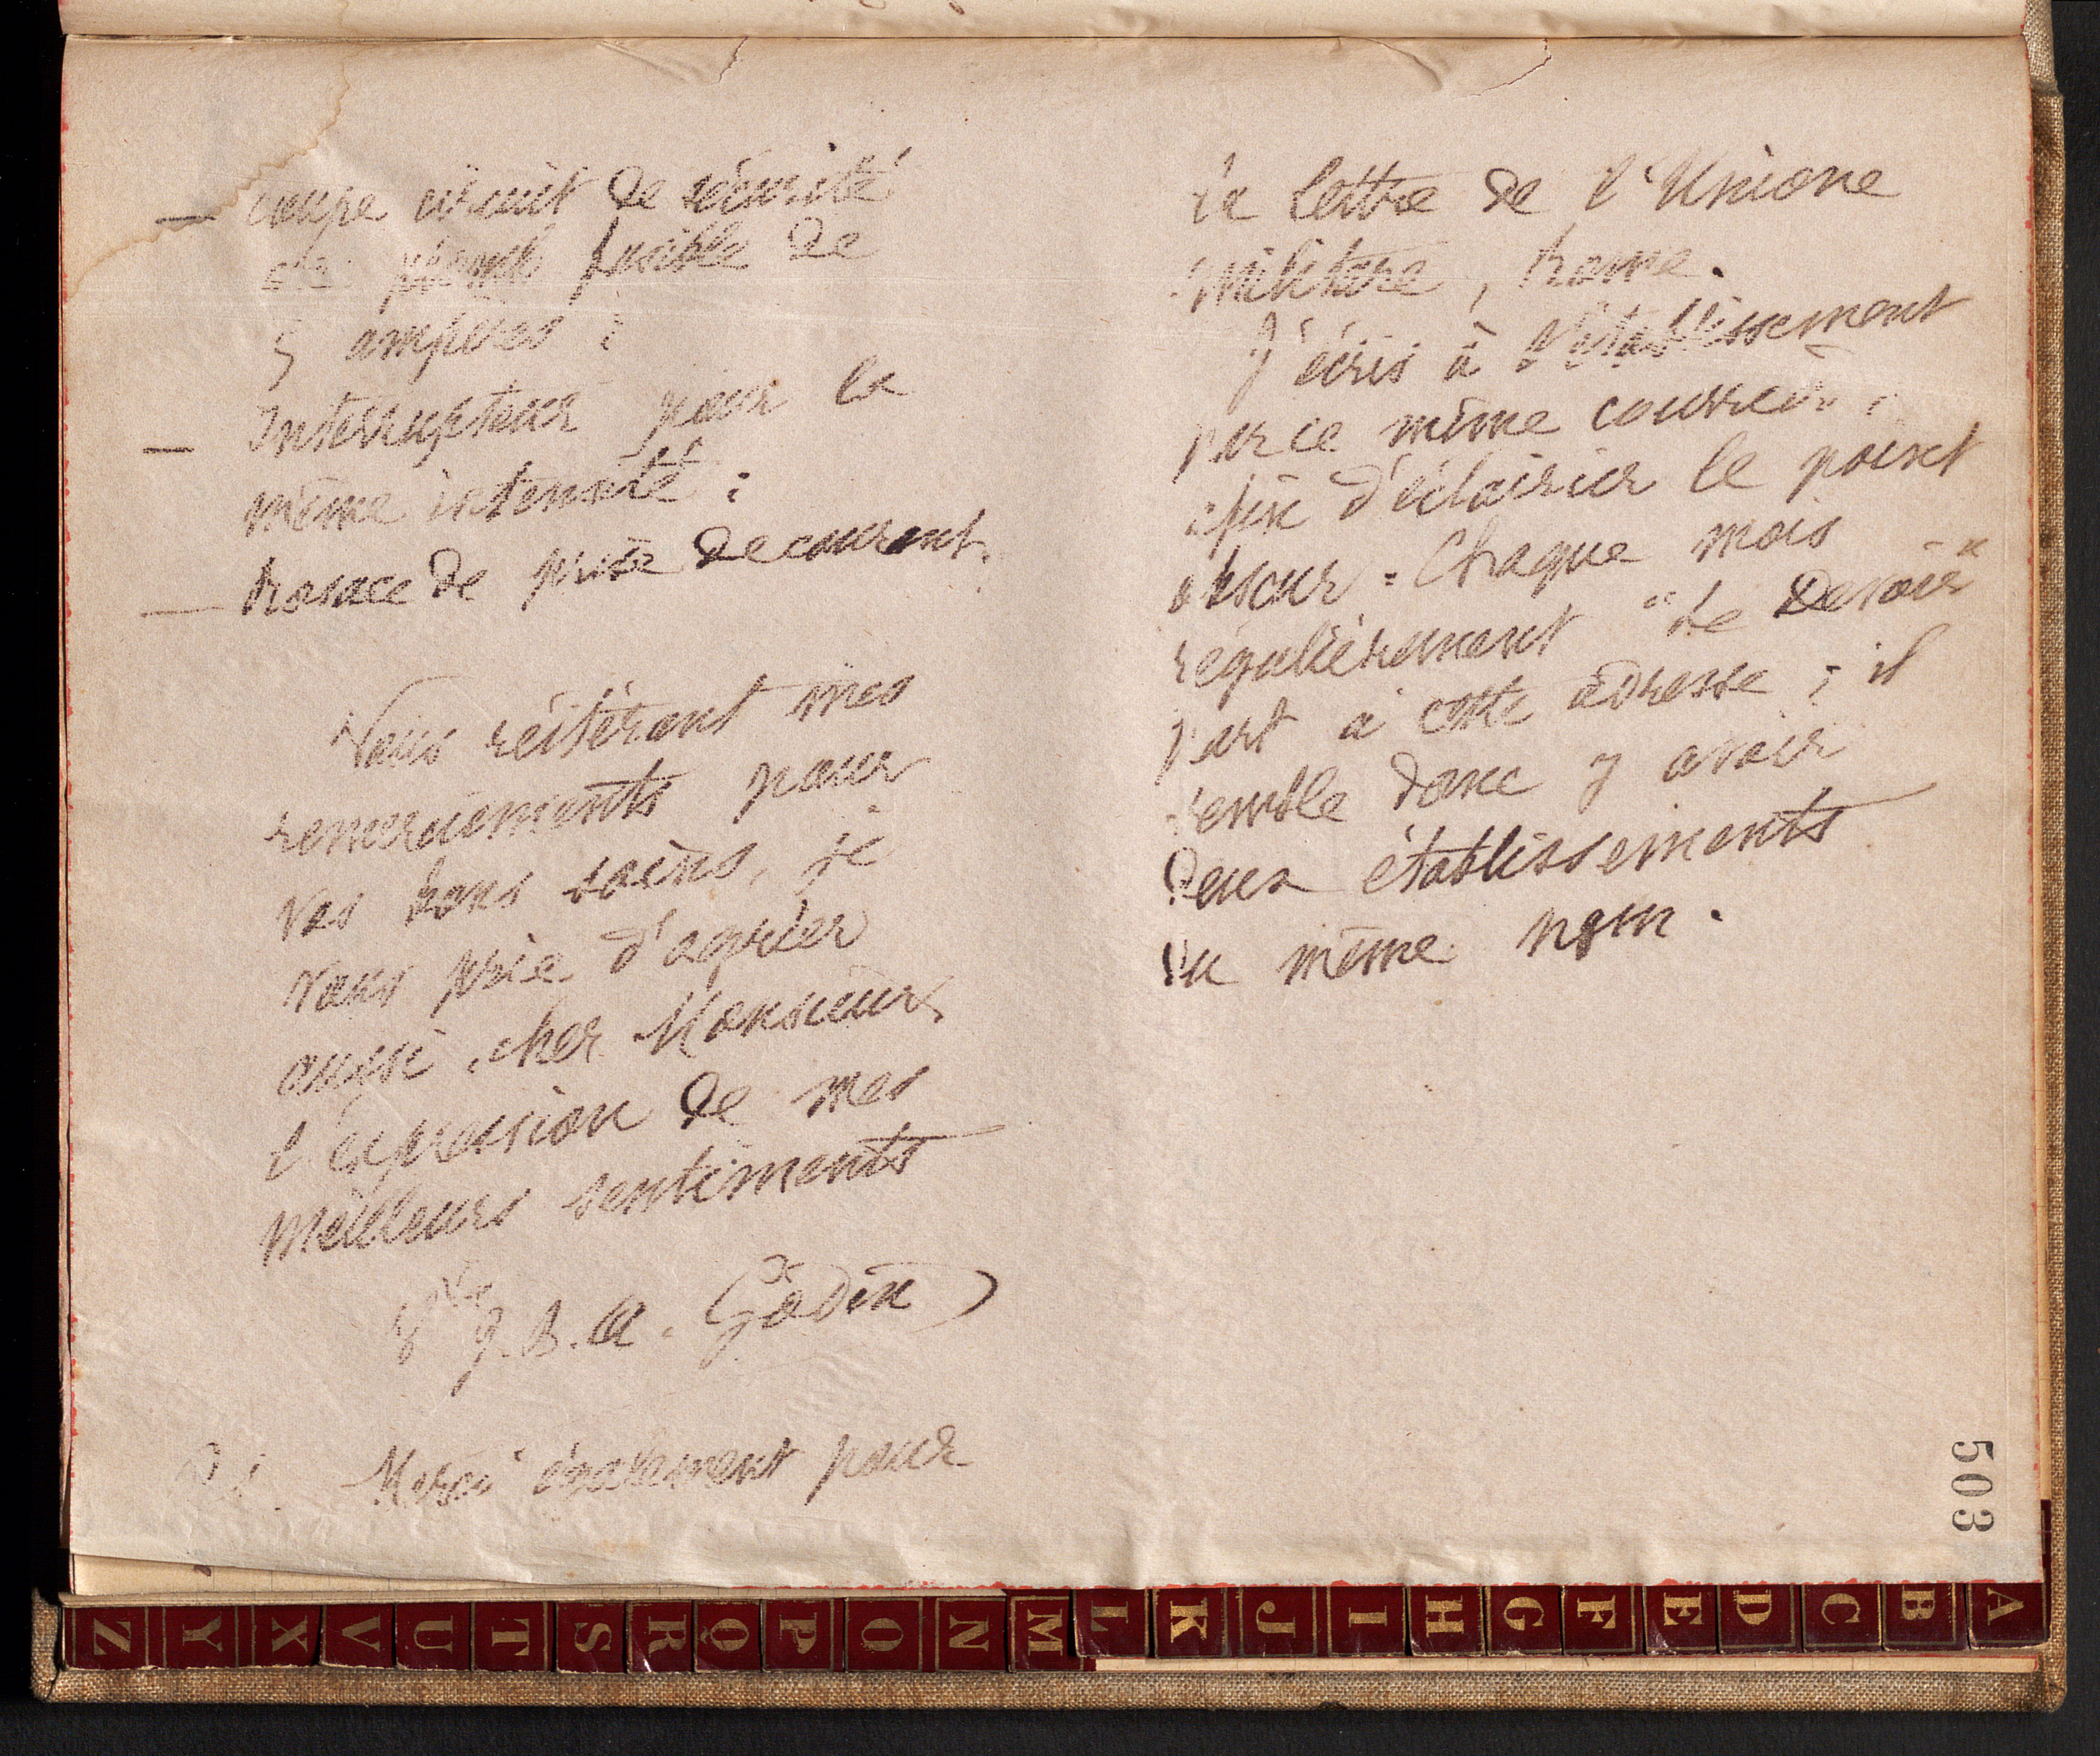 — coupe circuit de sécurité
plomb fusible de
5 ampères ;
— Interrupteur pour la
même intensité ;
— Rosace de prise de courant.
Vous réitérant mes
remerciements pour
vos bons soins, je
vous prie d'agréer
aussi, cher Monsieur,
l'expression de mes
meilleurs sentiments
Vve J.B.A. Godin
P.S. Merci également pour
la lettre de l'Unione
militare, Rome.
J'écris à l'établissement
par ce même courrier,
afin d'éclaircir le point
obscur. Chaque mois
régulièrement "Le Devoir"
part à cette adresse ; il
semble donc y avoir
deux établissements
du même nom.
503
Z Y X V U T S R Q P O N M L K J I H G F E D C B A